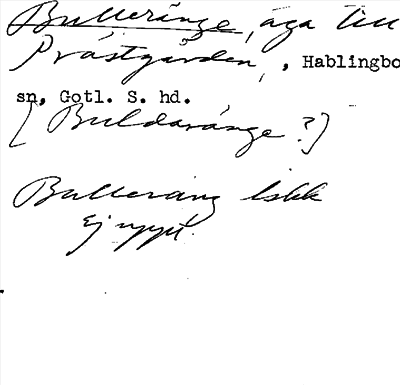 Bulleränge, äga till
Prästgården, Hablingbo
sn, Gotl. S. hd.
[Buldaränge?]
Bulleräng
Ej uppt.